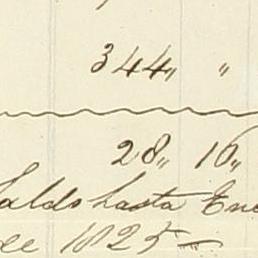 344,, ,,
28,, 16,,
Saldo hasta Ene
de 1825